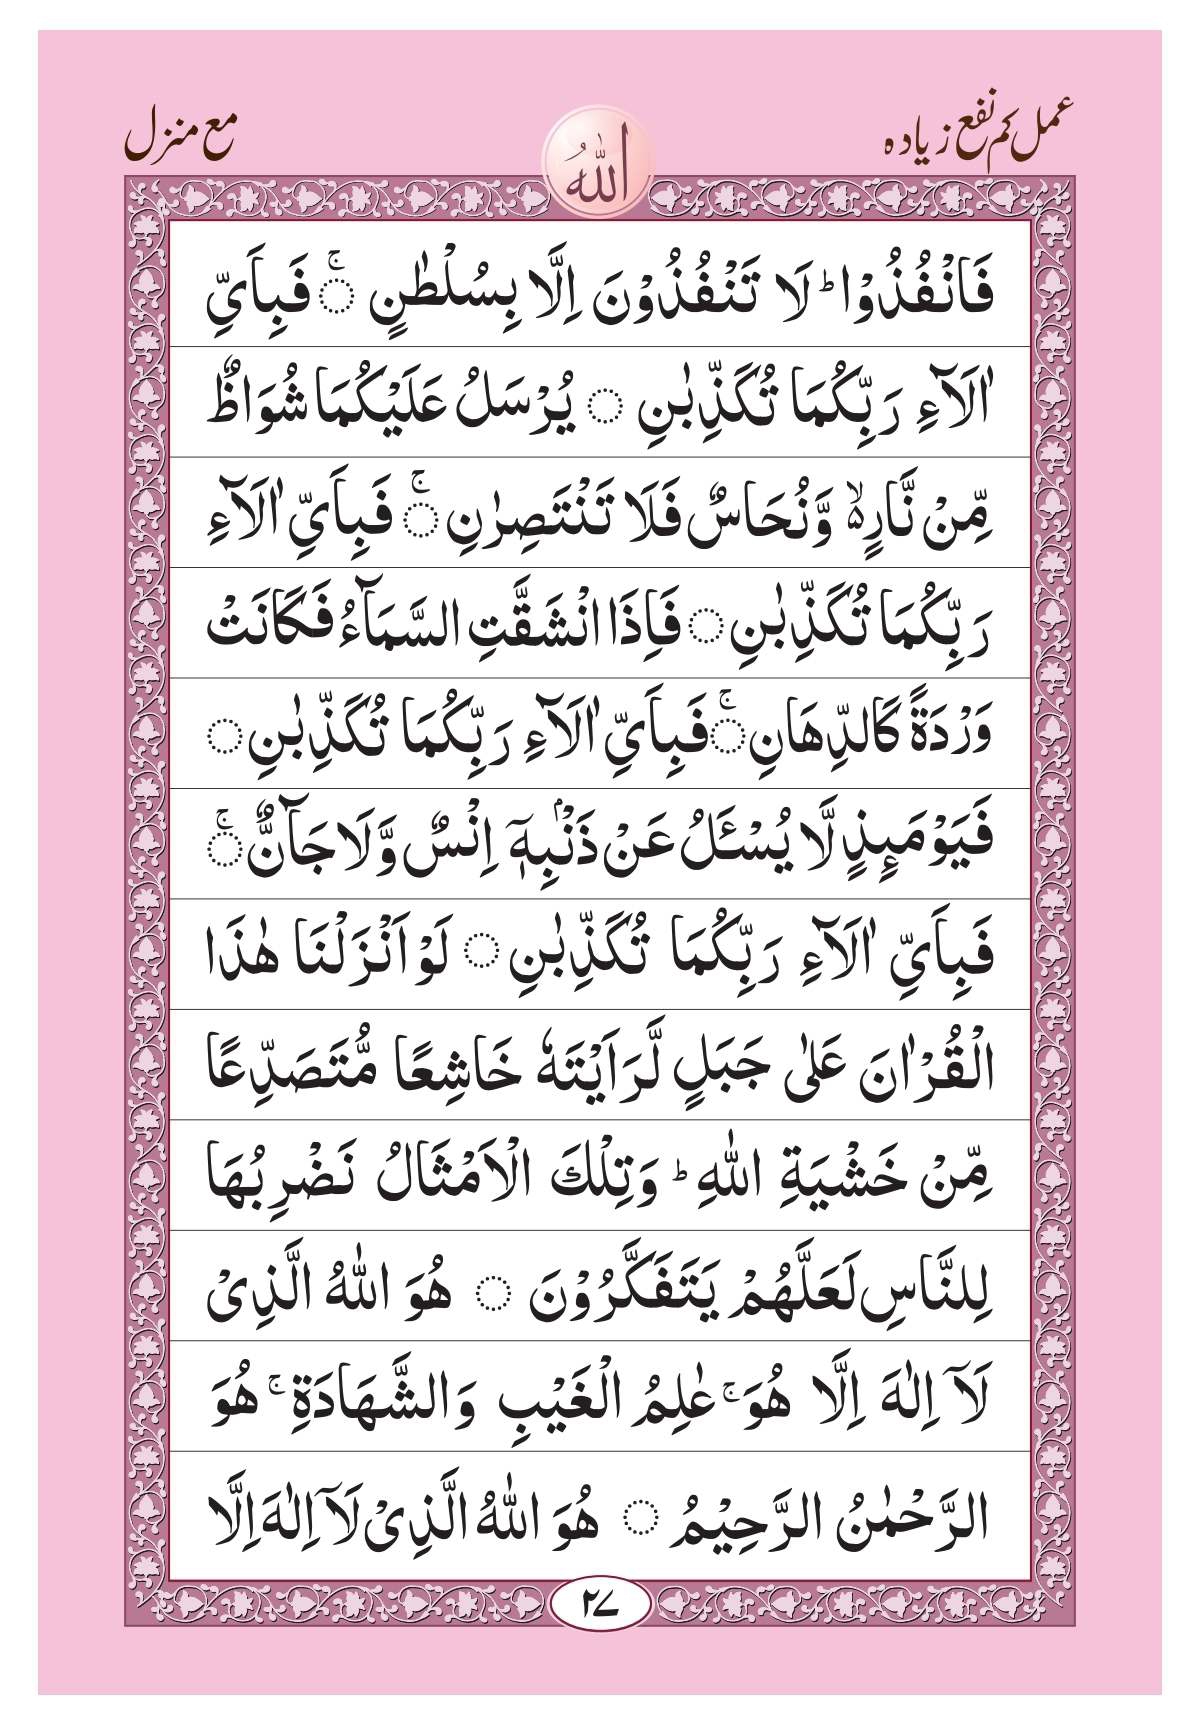 عمل کم نفع زیادہ
مع منزل
الله
فَانْفُذُوْا ؕ لَا تَنْفُذُوْنَ اِلَّا بِسُلْطٰنٍ ۚ۝ فَبِاَیِّ
اٰلَآءِ رَبِّكُمَا تُكَذِّبٰنِ ۝ یُرْسَلُ عَلَیْكُمَا شُوَاظٌ
مِّنْ نَّارٍ ۙ۬ وَّنُحَاسٌ فَلَا تَنْتَصِرٰنِ ۚ۝ فَبِاَیِّ اٰلَآءِ
رَبِّكُمَا تُكَذِّبٰنِ ۝ فَاِذَا انْشَقَّتِ السَّمَآءُ فَكَانَتْ
وَرْدَةً كَالدِّهَانِ ۚ۝ فَبِاَیِّ اٰلَآءِ رَبِّكُمَا تُكَذِّبٰنِ ۝
فَیَوْمَىِٕذٍ لَّا یُسْـَٔلُ عَنْ ذَنْۢبِهٖۤ اِنْسٌ وَّلَا جَآنٌّ ۚ۝
فَبِاَیِّ اٰلَآءِ رَبِّكُمَا تُكَذِّبٰنِ ۝ لَوْ اَنْزَلْنَا هٰذَا
الْقُرْاٰنَ عَلٰى جَبَلٍ لَّرَاَیْتَهٗ خَاشِعًا مُّتَصَدِّعًا
مِّنْ خَشْیَةِ اللّٰهِ ؕ وَتِلْكَ الْاَمْثَالُ نَضْرِبُهَا
لِلنَّاسِ لَعَلَّهُمْ یَتَفَكَّرُوْنَ ۝ هُوَ اللّٰهُ الَّذِیْ
لَاۤ اِلٰهَ اِلَّا هُوَ ۚ عٰلِمُ الْغَیْبِ وَالشَّهَادَةِ ۚ هُوَ
الرَّحْمٰنُ الرَّحِیْمُ ۝ هُوَ اللّٰهُ الَّذِیْ لَاۤ اِلٰهَ اِلَّا
۲۷